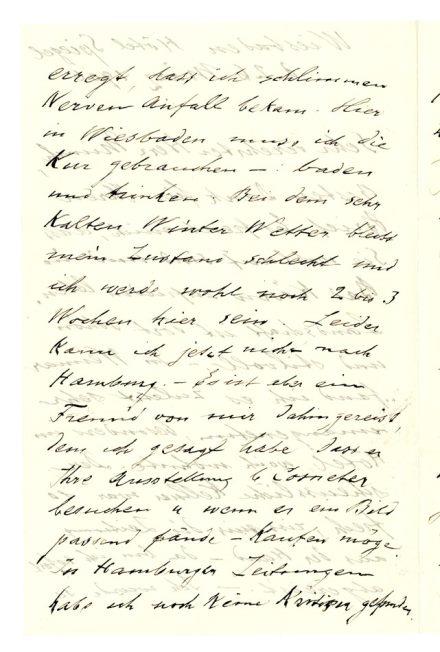 erregt, dass ich schlimmen
Nerven Anfall bekam. Hier
in Wiesbaden muss ich die
Kur gebrauchen – baden
und trinken. Bei dem sehr
Kalten Winter Wetter bleibt
mein Zustand schlecht und
ich werde wohl noch 2 bis 3
Wochen hier sein. Leider
kann ich jetzt nicht nach
Hamburg. – Es ist aber ein
Freund von mir dahin gereist,
dem ich gesagt habe dass er
Ihre Ausstellung b
besuchen u wenn er ein Bild
passend fände – Kaufen möge.
In Hamburger Zeitungen
habe ich noch Keine Kritiken gefunden.